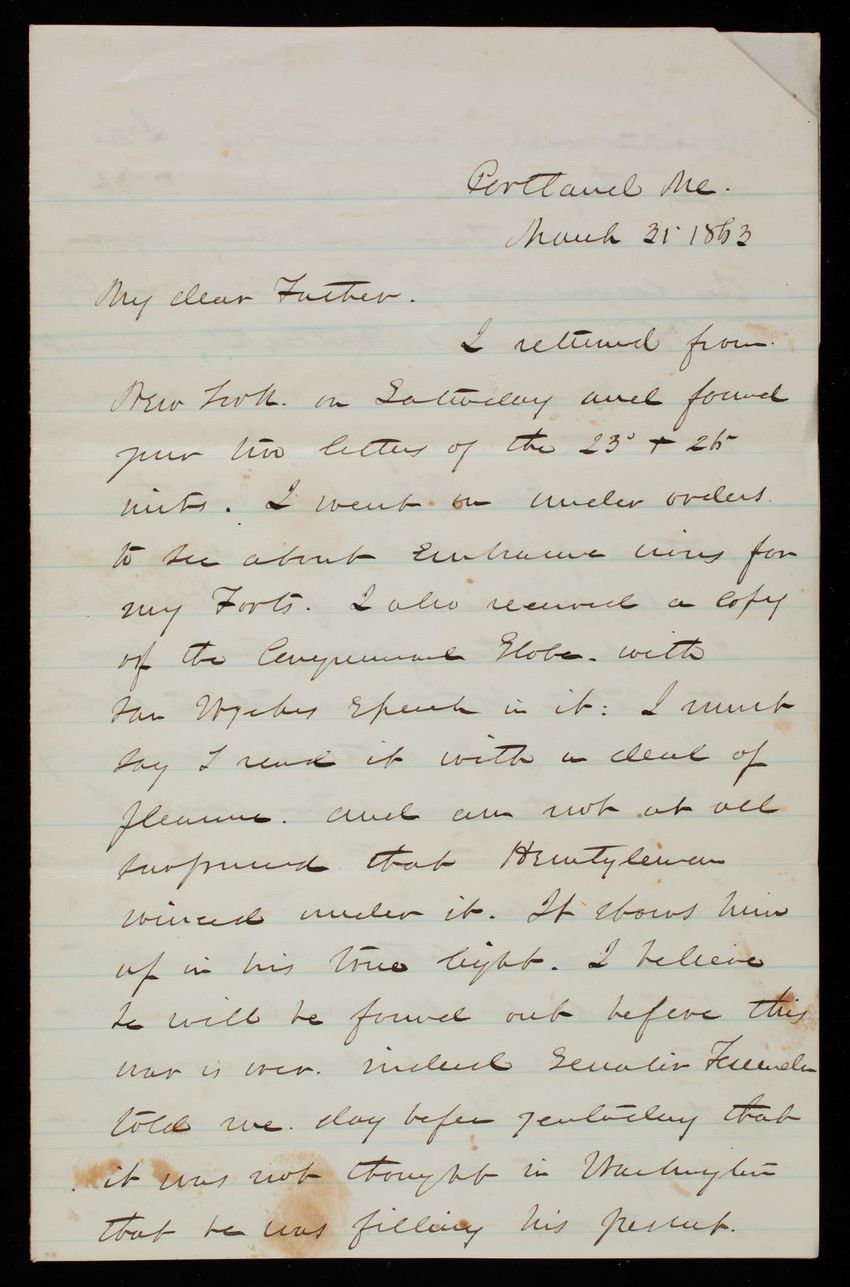 Portland Me.
March 31 1863
My dear Father.
I returned from
New York. on Saturday and found
your two letters of the 23d + 25
. I went on under orders
to see about Embrasure irons for
my Forts. I also received a copy
of the Congressional Globe. with
Van Wycks Speech in it: I must
say I read it with a deal of
pleasure. and am not at all
surprised that
winced under it. It shows him
up in his true light. I believe
he will be found out before this
war is over. indeed Senator Fessenden
told me. day before yesterday that
it was not thought in Washington
that he was filling his